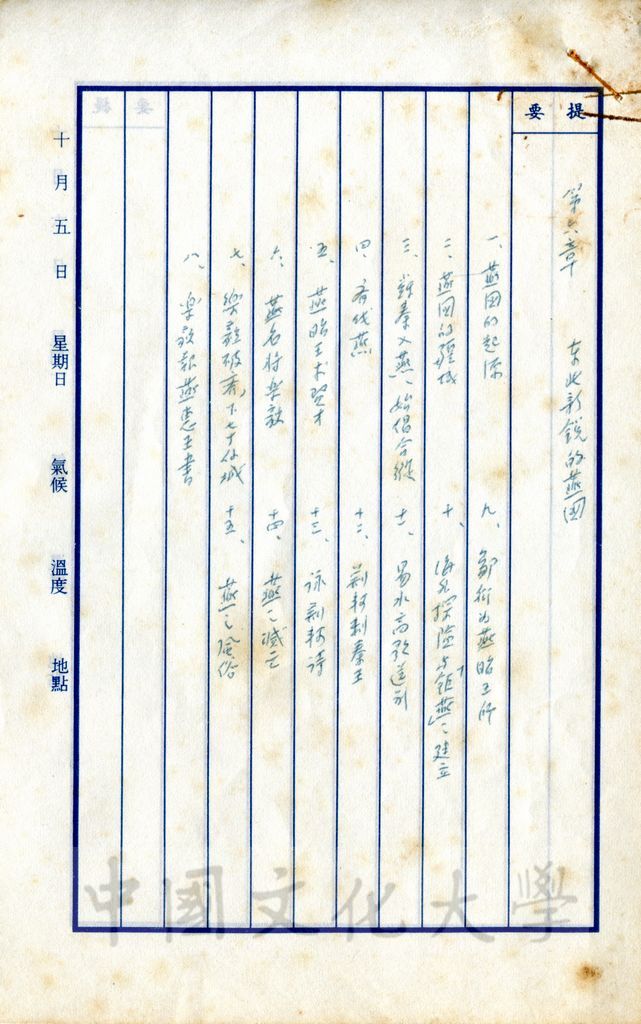 提要
第六章 东北新銳的燕国
一、燕国的起源
九、鄒衍为燕昭王师
二、燕国的疆域
十、海外探險与「鉅燕」之建立
三、
始倡合縱
十一、易水高歌送别
四、齐伐燕
十二、荆轲刺秦王
五、燕昭王求贤才
十三、咏荆轲诗
六、燕名将乐毅
十四、燕之滅亡
七、樂毅破齊，下七十余城
十五、燕之風俗
八、乐毅報燕惠王書
十月五日 星期日 氣候 溫度 地點
中國文化大學